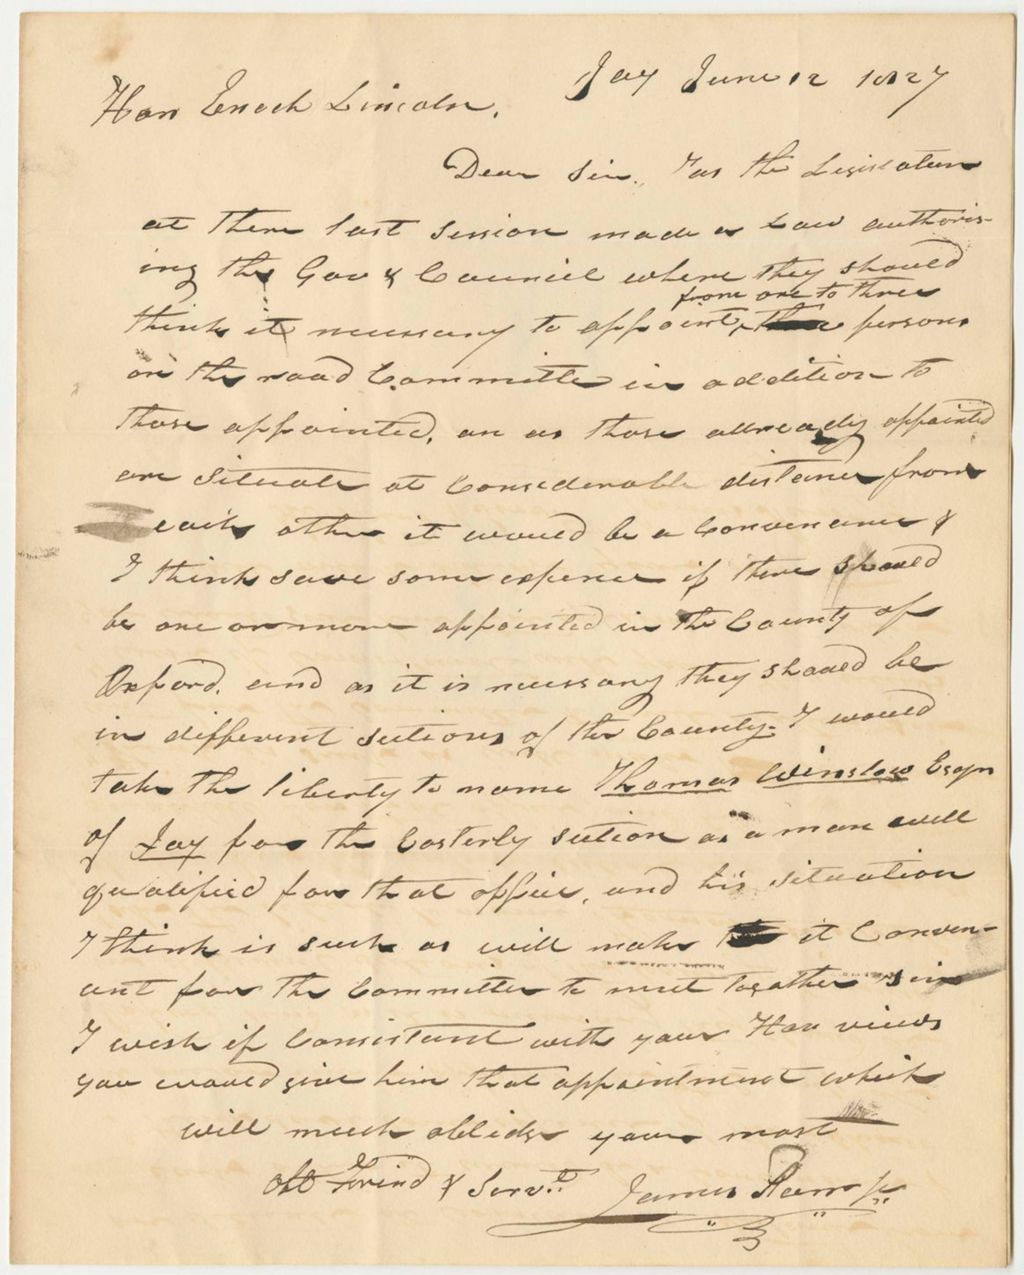 Jay June 12 1827
Hon Enoch Lincoln,
Dear Sir, as the Legislature
at there last Session made a Law authoris-
ing the Gov & Council where they should
from one to three
think it necessary to appoint, persons
on the road Committe in addition to
those appointed, an as those allready appointed
are Situate at Considerable distance from
each other it would be a Convenance &
I think save some expence if there should
be one or more appointed in the County of
Oxford, and as it is necessary they should be
in different sections of the County, I would
take the liberty to name Thomas Winslow Esqr
of Jay for the Easterly section as a man well
qualified for that office, and his situation
I think is such as will make it Conven-
ant for the Committee to meet together
I wish if Consistant with your Hon views
you would give him that appointment which
will much oblidge your most
obt Friend & Servt James Starr Jr